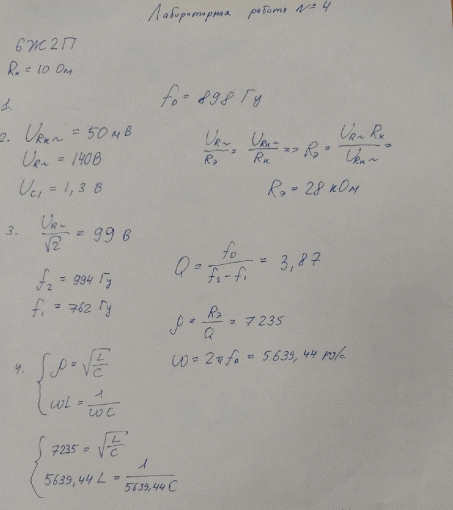 Лабораторная работа №4
6Ж2П
Rк = 10 Ом
1. f₀ = 898 Гц
2. U_Rк~ = 50 мВ
U_R~ = 140 В
U_C1 = 1,3 В
U_R~/Rэ = U_Rк~/Rк => Rэ = U_R~ Rк/U_Rк~ =
Rэ = 28 кОм
3. U_R~/√2 = 99 В
f₂ = 994 Гц
f₁ = 762 Гц
Q = f₀/(f₂ - f₁) = 3,87
ρ = Rэ/Q = 7235
ω = 2πf₀ = 5639,44 рад/с
4. { ρ = √(L/C)
ωL = 1/(ωC)
{ 7235 = √(L/C)
5639,44 L = 1/(5639,44 C)